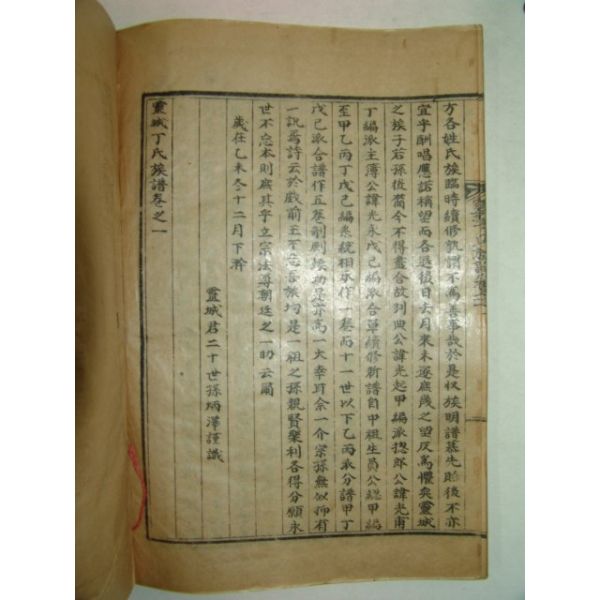 方各姓氏族臨時續修孰謂不爲善事哉於是収族明譜慕先貽後不亦
宜乎酬唱應諾稱望而各退後日去月來未遂庶幾之望反爲懼矣靈城
之族子若孫従蔔今不得盡合故別典公諱光起甲編派諰郎公諱光甫
丁編派主簿公諱光永戊己編派合單續修新譜自甲祖生員公諰甲編
至甲乙丙丁戊己編系統相承作一卷而十一世以下乙丙派分譜甲丁
戊己派合譜作五卷剞劂接助是亦高一大幸耳余一介宗孫無似抑有
一說焉詩云於戲前王不忘吾族均是一祖之孫親賢樂利各得分願永
世不忘本則庶其乎立宗法尊朝廷之一助云爾
歲在乙未冬十二月下澣
靈城君二十世孫炳澤謹識
靈城丁氏族譜卷之一